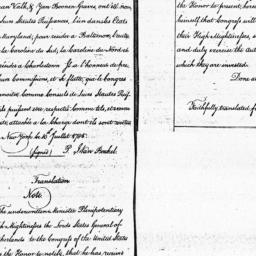 van Valk, & Jean Boonen Graves, ont été nom
leurs hautes Puissances, l'un dans les Etats
Maryland, pour resider a Baltimore, l'autre
la Caroline du Sud, la Caroline du Nord et
resider a Charlestown. Il a l'honneur de pre
leur Commission, et se flatte, que le Congres
connoitre comme Consuls de Leurs Hautes Puis
ils puissent etre respectés comme tels, et exerce
ité attachée a la charge dont ils sont revêtus
New York le 10. Juillet 1786.
(signed) P. J. Van Berckel.
Translation
Note
The underwritten Minister Plenipotentiary
High Mightinesses the Lords States General of
Netherlands to the Congress of the United States
the Honor to notify, that he has received
the Honor to present, here
himself that Congress will
their High Mightinesses, a
and duly exercise the aut
which they are invested.
Done a
Faithfully translated f